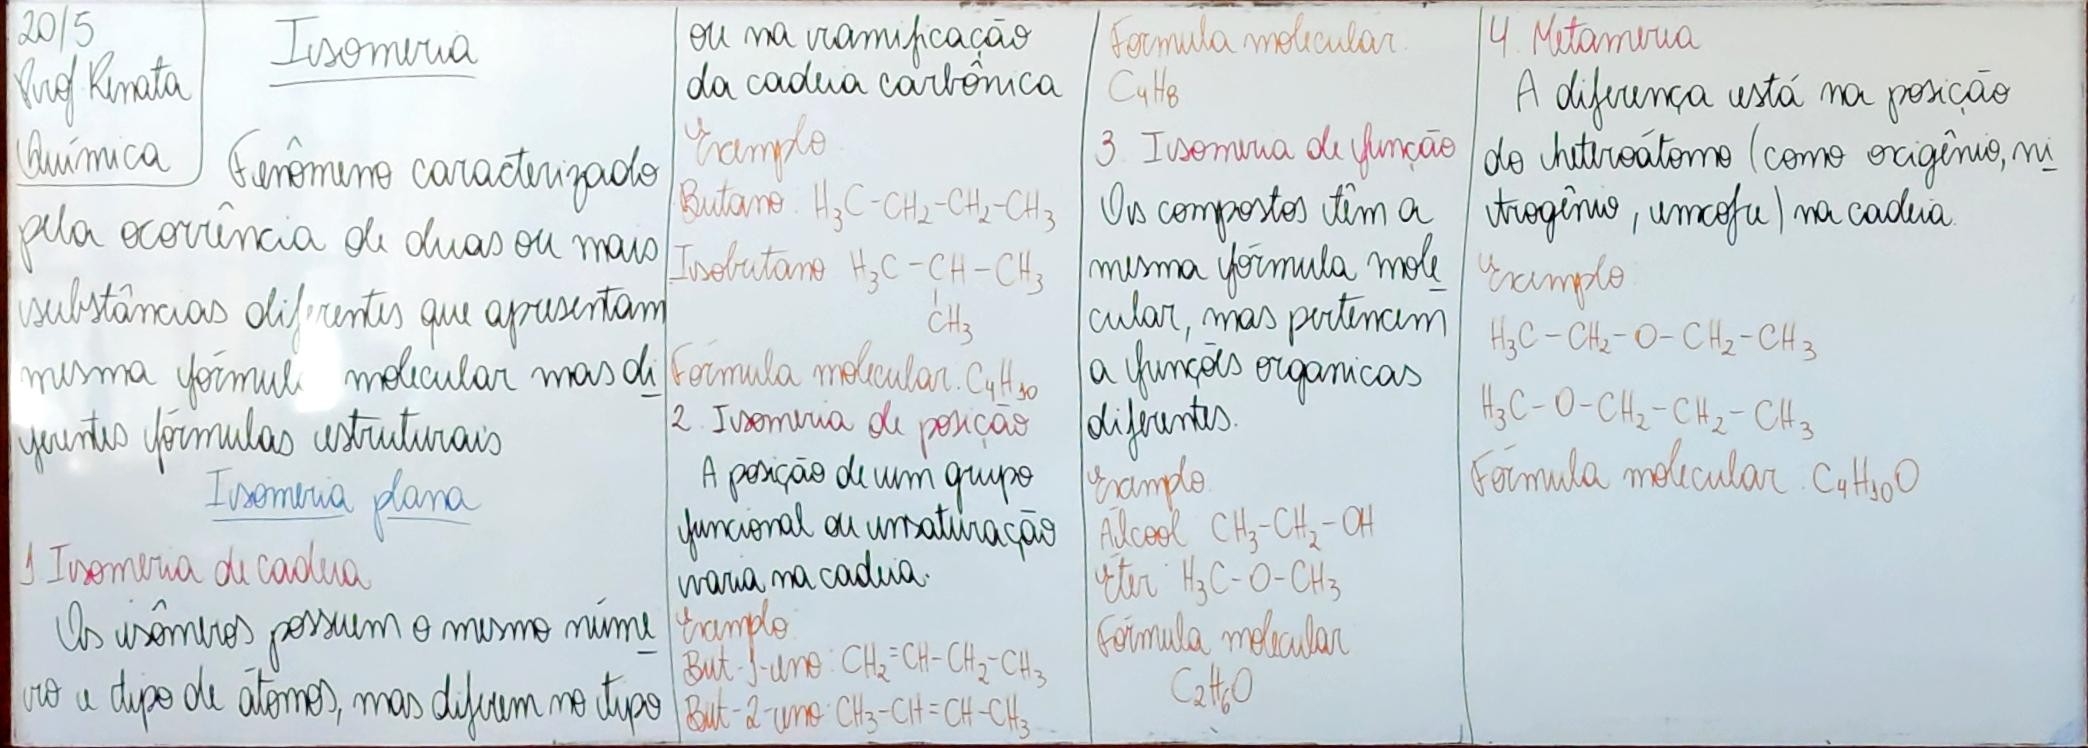 20/5
Prof Renata
Química
Isomeria
Fenômeno caracterizado
pela ocorrência de duas ou mais
substâncias diferentes que apresentam
mesma fórmula molecular mas di
ferentes fórmulas estruturais
Isomeria plana
1 Isomeria de cadeia
Os isômeros possuem o mesmo núme
ro e tipo de átomos, mas diferem no tipo
ou na ramificação
da cadeia carbônica
Exemplo
Butano: H₃C-CH₂-CH₂-CH₃
Isobutano H₃C-CH-CH₃
CH₃
Fórmula molecular: C₄H₁₀
2. Isomeria de posição
A posição de um grupo
funcional ou insaturação
varia na cadeia.
Exemplo
But-1-eno: CH₂=CH-CH₂-CH₃
But-2-eno: CH₃-CH=CH-CH₃
Fórmula molecular:
C₄H₈
3. Isomeria de função
Os compostos têm a
mesma fórmula mole
cular, mas pertencem
a funções organicas
diferentes.
Exemplo
Álcool CH₃-CH₂-OH
Éter: H₃C-O-CH₃
Fórmula molecular
C₂H₆O
4. Metameria
A diferença está na posição
do heteroátomo (como oxigênio, ni
trogênio, enxofre) na cadeia.
Exemplo
H₃C-CH₂-O-CH₂-CH₃
H₃C-O-CH₂-CH₂-CH₃
Fórmula molecular: C₄H₁₀O